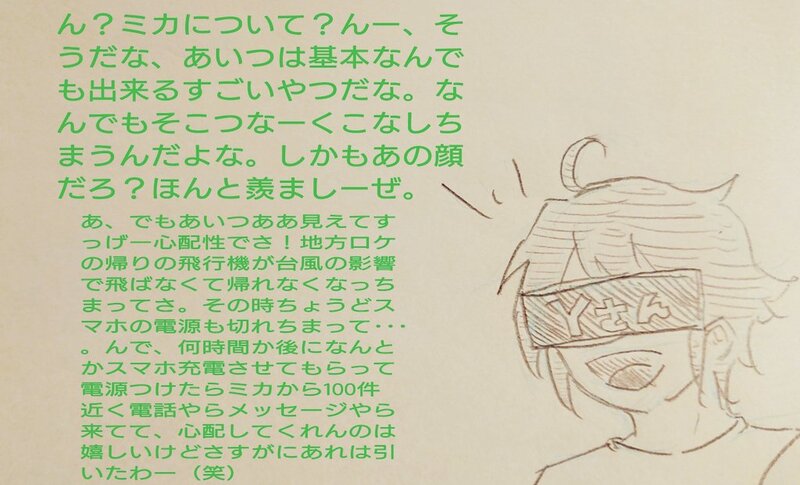 ん？ミカについて？んー、そ
うだな、あいつは基本なんで
も出来るすごいやつだな。な
んでもそこつなーくこなしち
まうんだよな。しかもあの顔
だろ？ほんと羨ましーぜ。
あ、でもあいつああ見えてす
っげー心配性でさ！地方ロケ
の帰りの飛行機が台風の影響
で飛ばなくて帰れなくなっち
まってさ。その時ちょうどス
マホの電源も切れちまって･･･
。んで、何時間か後になんと
かスマホ充電させてもらって
電源つけたらミカから100件
近く電話やらメッセージやら
来てて、心配してくれんのは
嬉しいけどさすがにあれは引
いたわー（笑）
Yさん